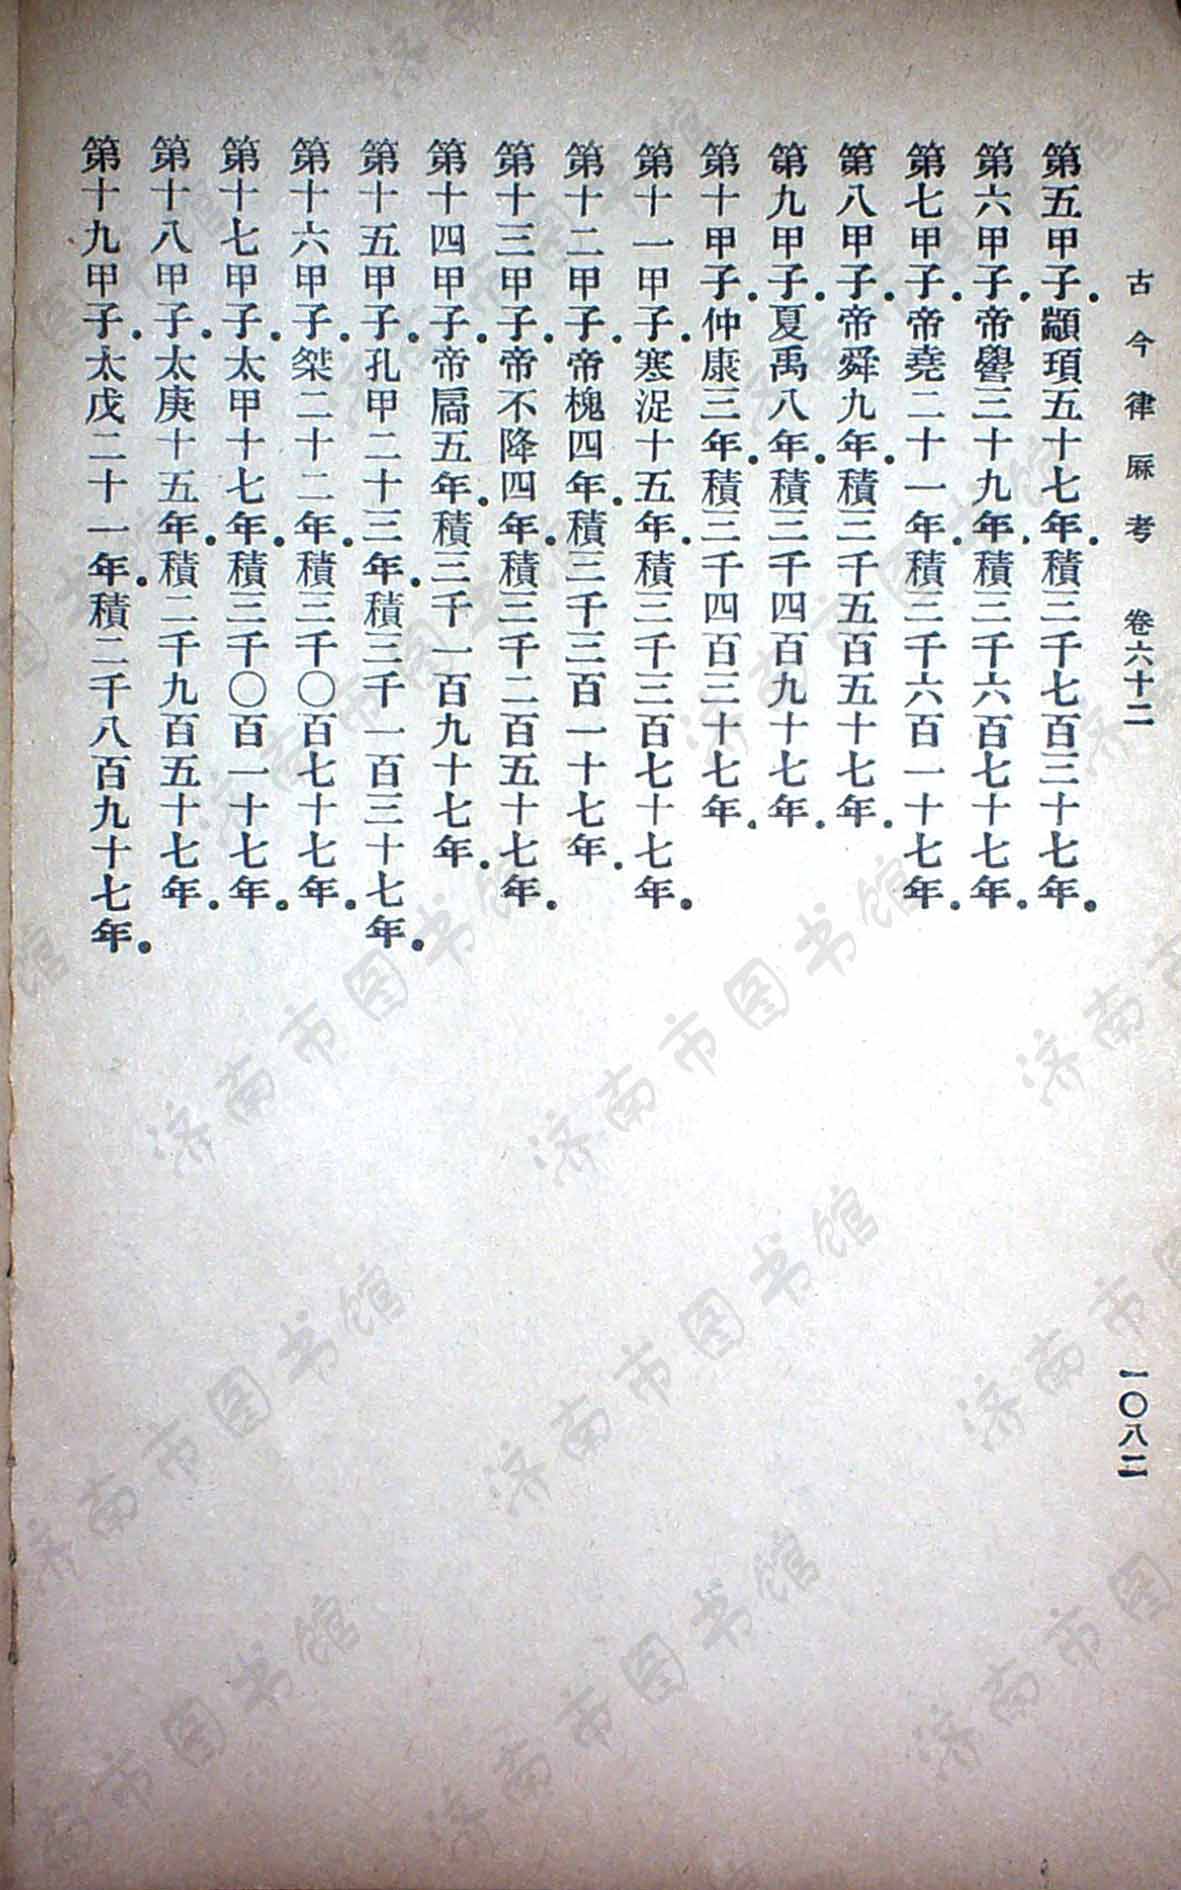 古今律厤考 卷六十二 一〇八二
第五甲子．顓頊五十七年．積三千七百三十七年．
第六甲子．帝嚳三十九年．積三千六百七十七年．
第七甲子．帝堯二十一年．積三千六百一十七年．
第八甲子．帝舜九年．積三千五百五十七年．
第九甲子．夏禹八年．積三千四百九十七年．
第十甲子．仲康三年．積三千四百三十七年．
第十一甲子．寒浞十五年．積三千三百七十七年．
第十二甲子．帝槐四年．積三千三百一十七年．
第十三甲子．帝不降四年．積三千二百五十七年．
第十四甲子．帝扃五年．積三千一百九十七年．
第十五甲子．孔甲二十三年．積三千一百三十七年．
第十六甲子．桀二十二年．積三千〇百七十七年．
第十七甲子．太甲十七年．積三千〇百一十七年．
第十八甲子．太庚十五年．積二千九百五十七年．
第十九甲子．太戊二十一年．積二千八百九十七年．
济南市图书馆